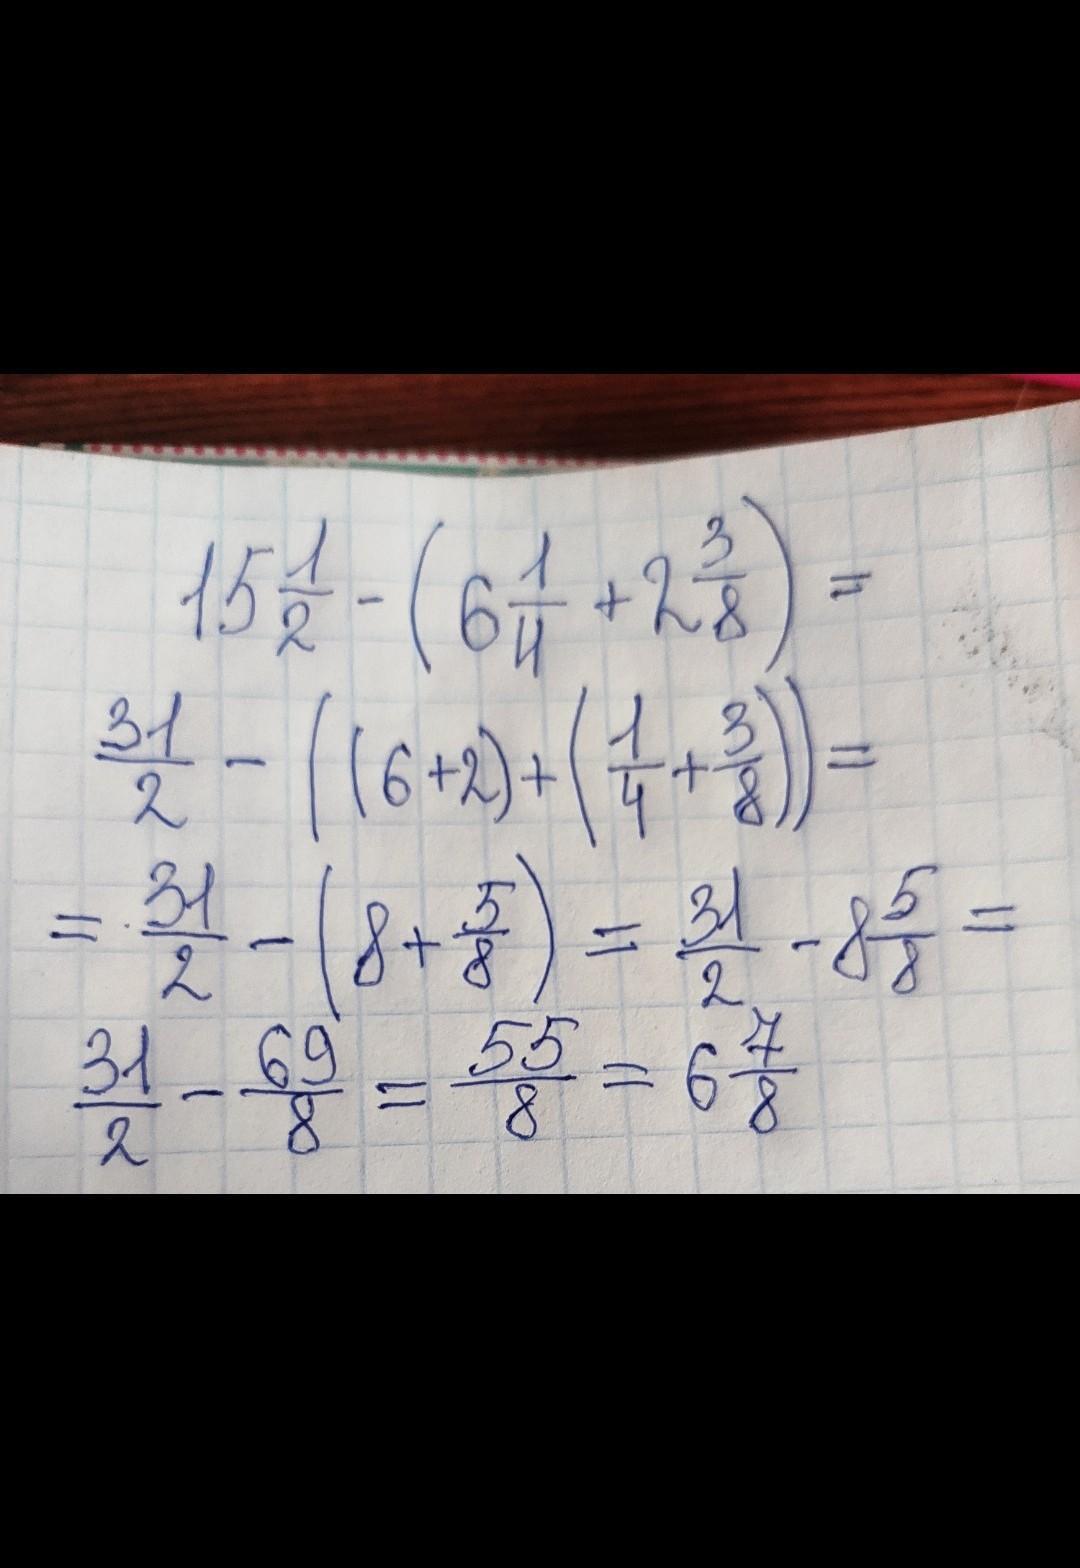 15 1/2 - (6 1/4 + 2 3/8) =
31/2 - ((6+2) + (1/4 + 3/8)) =
= 31/2 - (8 + 5/8) = 31/2 - 8 5/8 =
31/2 - 69/8 = 55/8 = 6 7/8